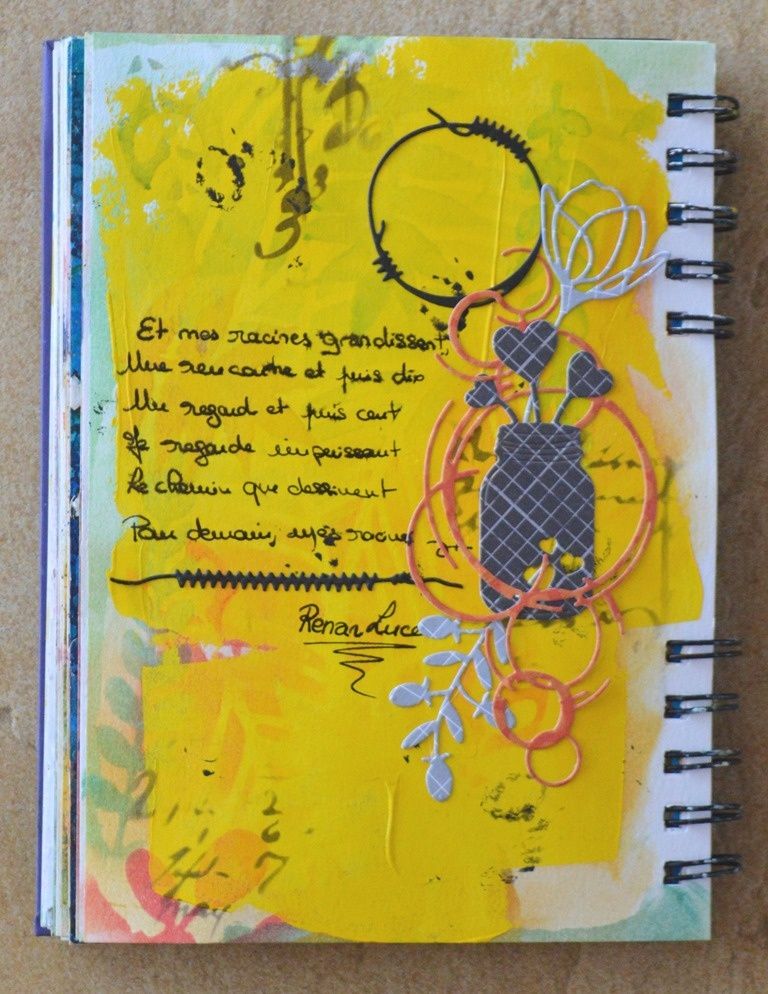 Et mes racines grandissent,
Une rencontre et puis dix
Un regard et puis cent
Je regarde impuissant
Le chemin que dessinent
Pour demain, mes racines
Renan Luce
2 2
6
7